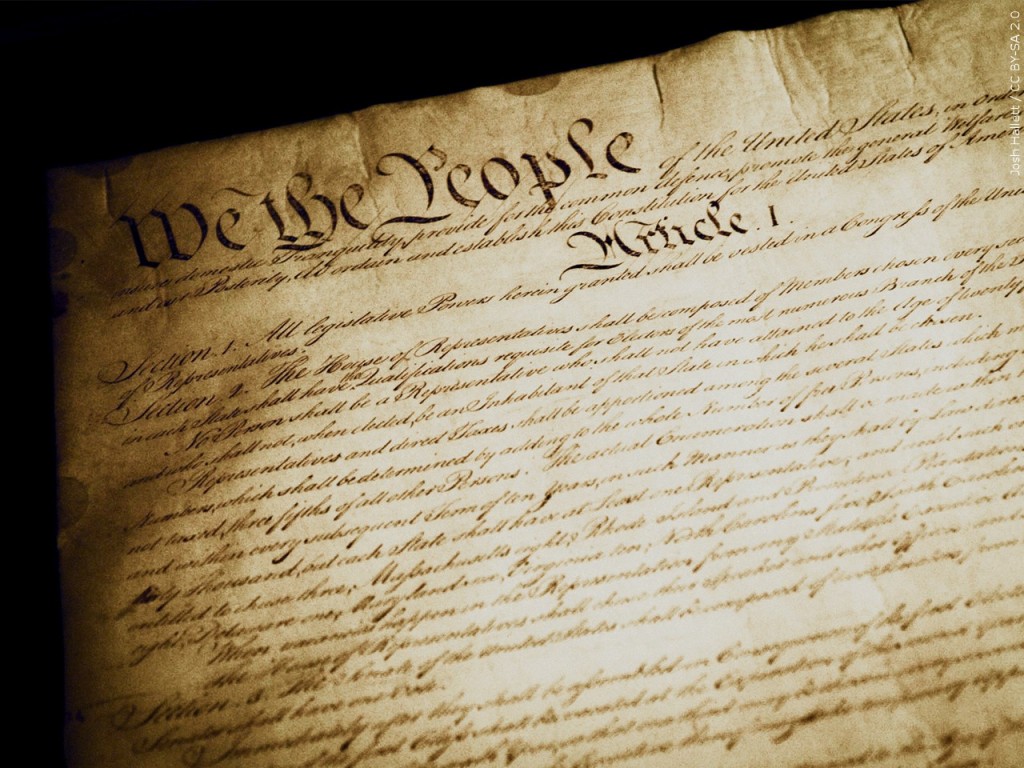 We the People of the United States, in Order
insure domestic Tranquility, provide for the common defence, promote the general Welfare
and our Posterity, do ordain and establish this Constitution for the United States of Ame
Article. I.
Section. 1. All legislative Powers herein granted shall be vested in a Congress of the Unit
of Representatives.
Section. 2. The House of Representatives shall be composed of Members chosen every sec
in each State shall have the Qualifications requisite for Electors of the most numerous Branch of the
No Person shall be a Representative who shall not have attained to the Age of twenty
and who shall not, when elected, be an Inhabitant of that State in which he shall be chosen.
Representatives and direct Taxes shall be apportioned among the several States which m
Numbers, which shall be determined by adding to the whole Number of free Persons, including
not taxed, three fifths of all other Persons. The actual Enumeration shall be made within
and within every subsequent Term of ten Years, in such Manner as they shall by Law direct
thirty Thousand, but each State shall have at Least one Representative; and until such
entitled to chuse three, Massachusetts eight, Rhode Island and Providence Plantations
eight, Delaware one, Maryland six, Virginia ten, North Carolina five, South Carolina
When vacancies happen in the Representation from any State, the Executive
The House of Representatives shall chuse their Speaker and other Officers
Section. 3. The Senate of the United States shall be composed of two Senators from
Senator shall have one Vote.
Immediately after they shall be assembled in Consequence of the first Election
of the first Class shall be vacated at the Expiration of the second Year
Josh Hallett / CC BY-SA 2.0